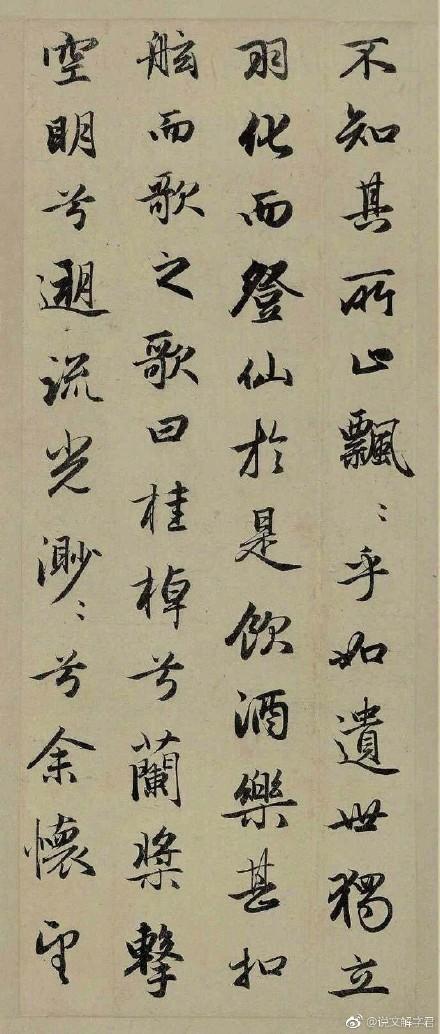 不知其所止飄〻乎如遺世獨立
羽化而登仙於是飲酒樂甚扣
舷而歌之歌曰桂棹兮蘭槳擊
空明兮遡流光渺〻兮余懷望
@说文解字君